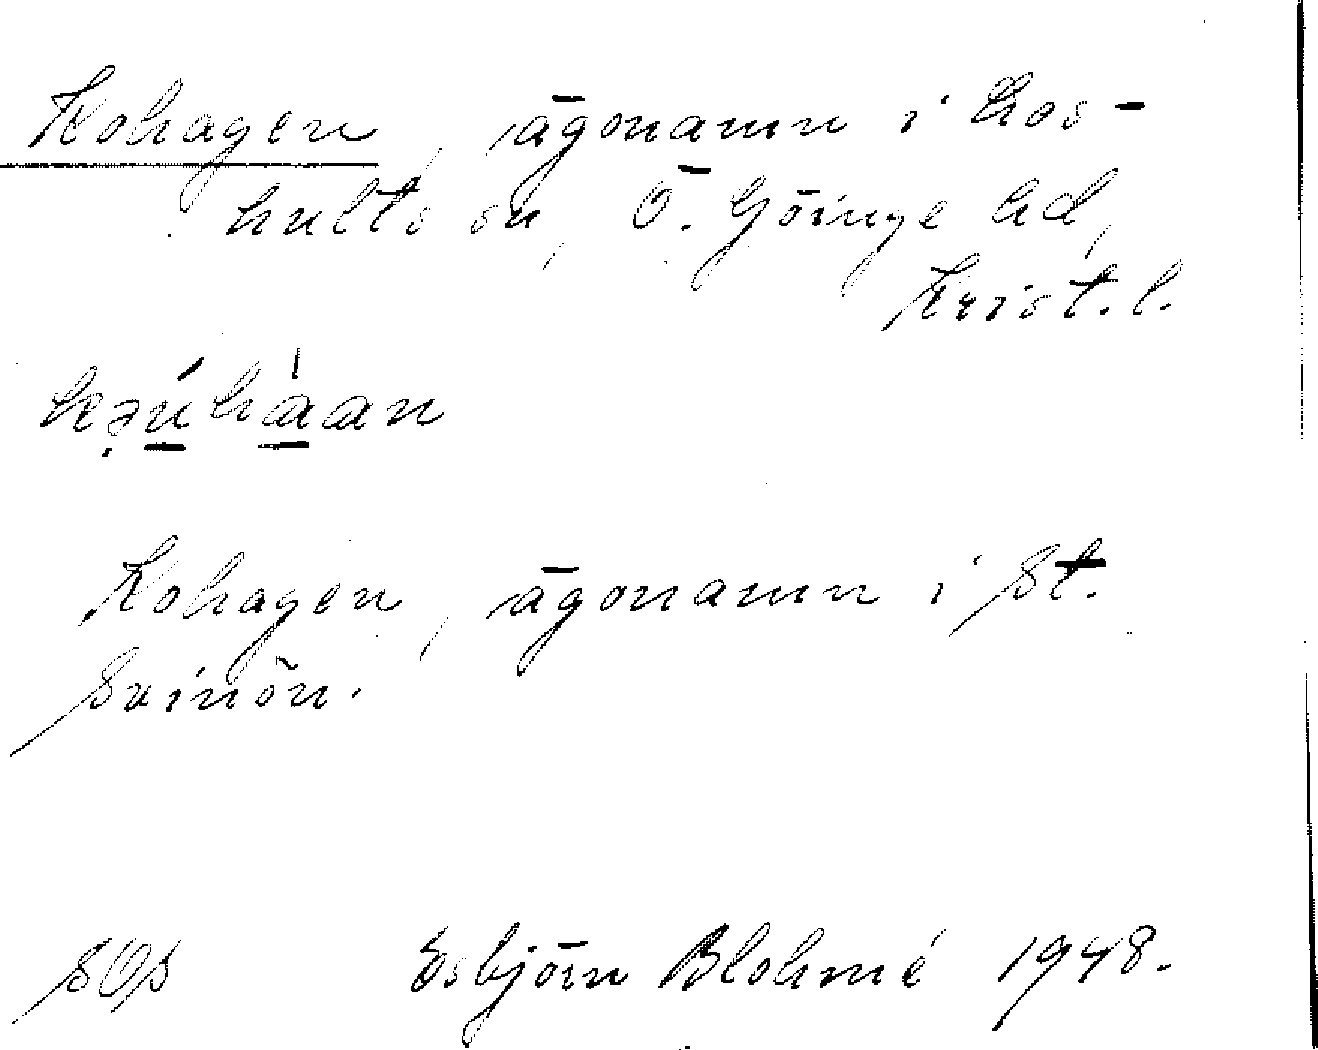 Kohagen, ägonamn i Hos-
hults sn, Ö. Göinge hd,
Krist. l.
kə̣úhàan
Kohagen, ägonamn i St.
Svinön.
SOS Esbjörn Blohmé 1948.